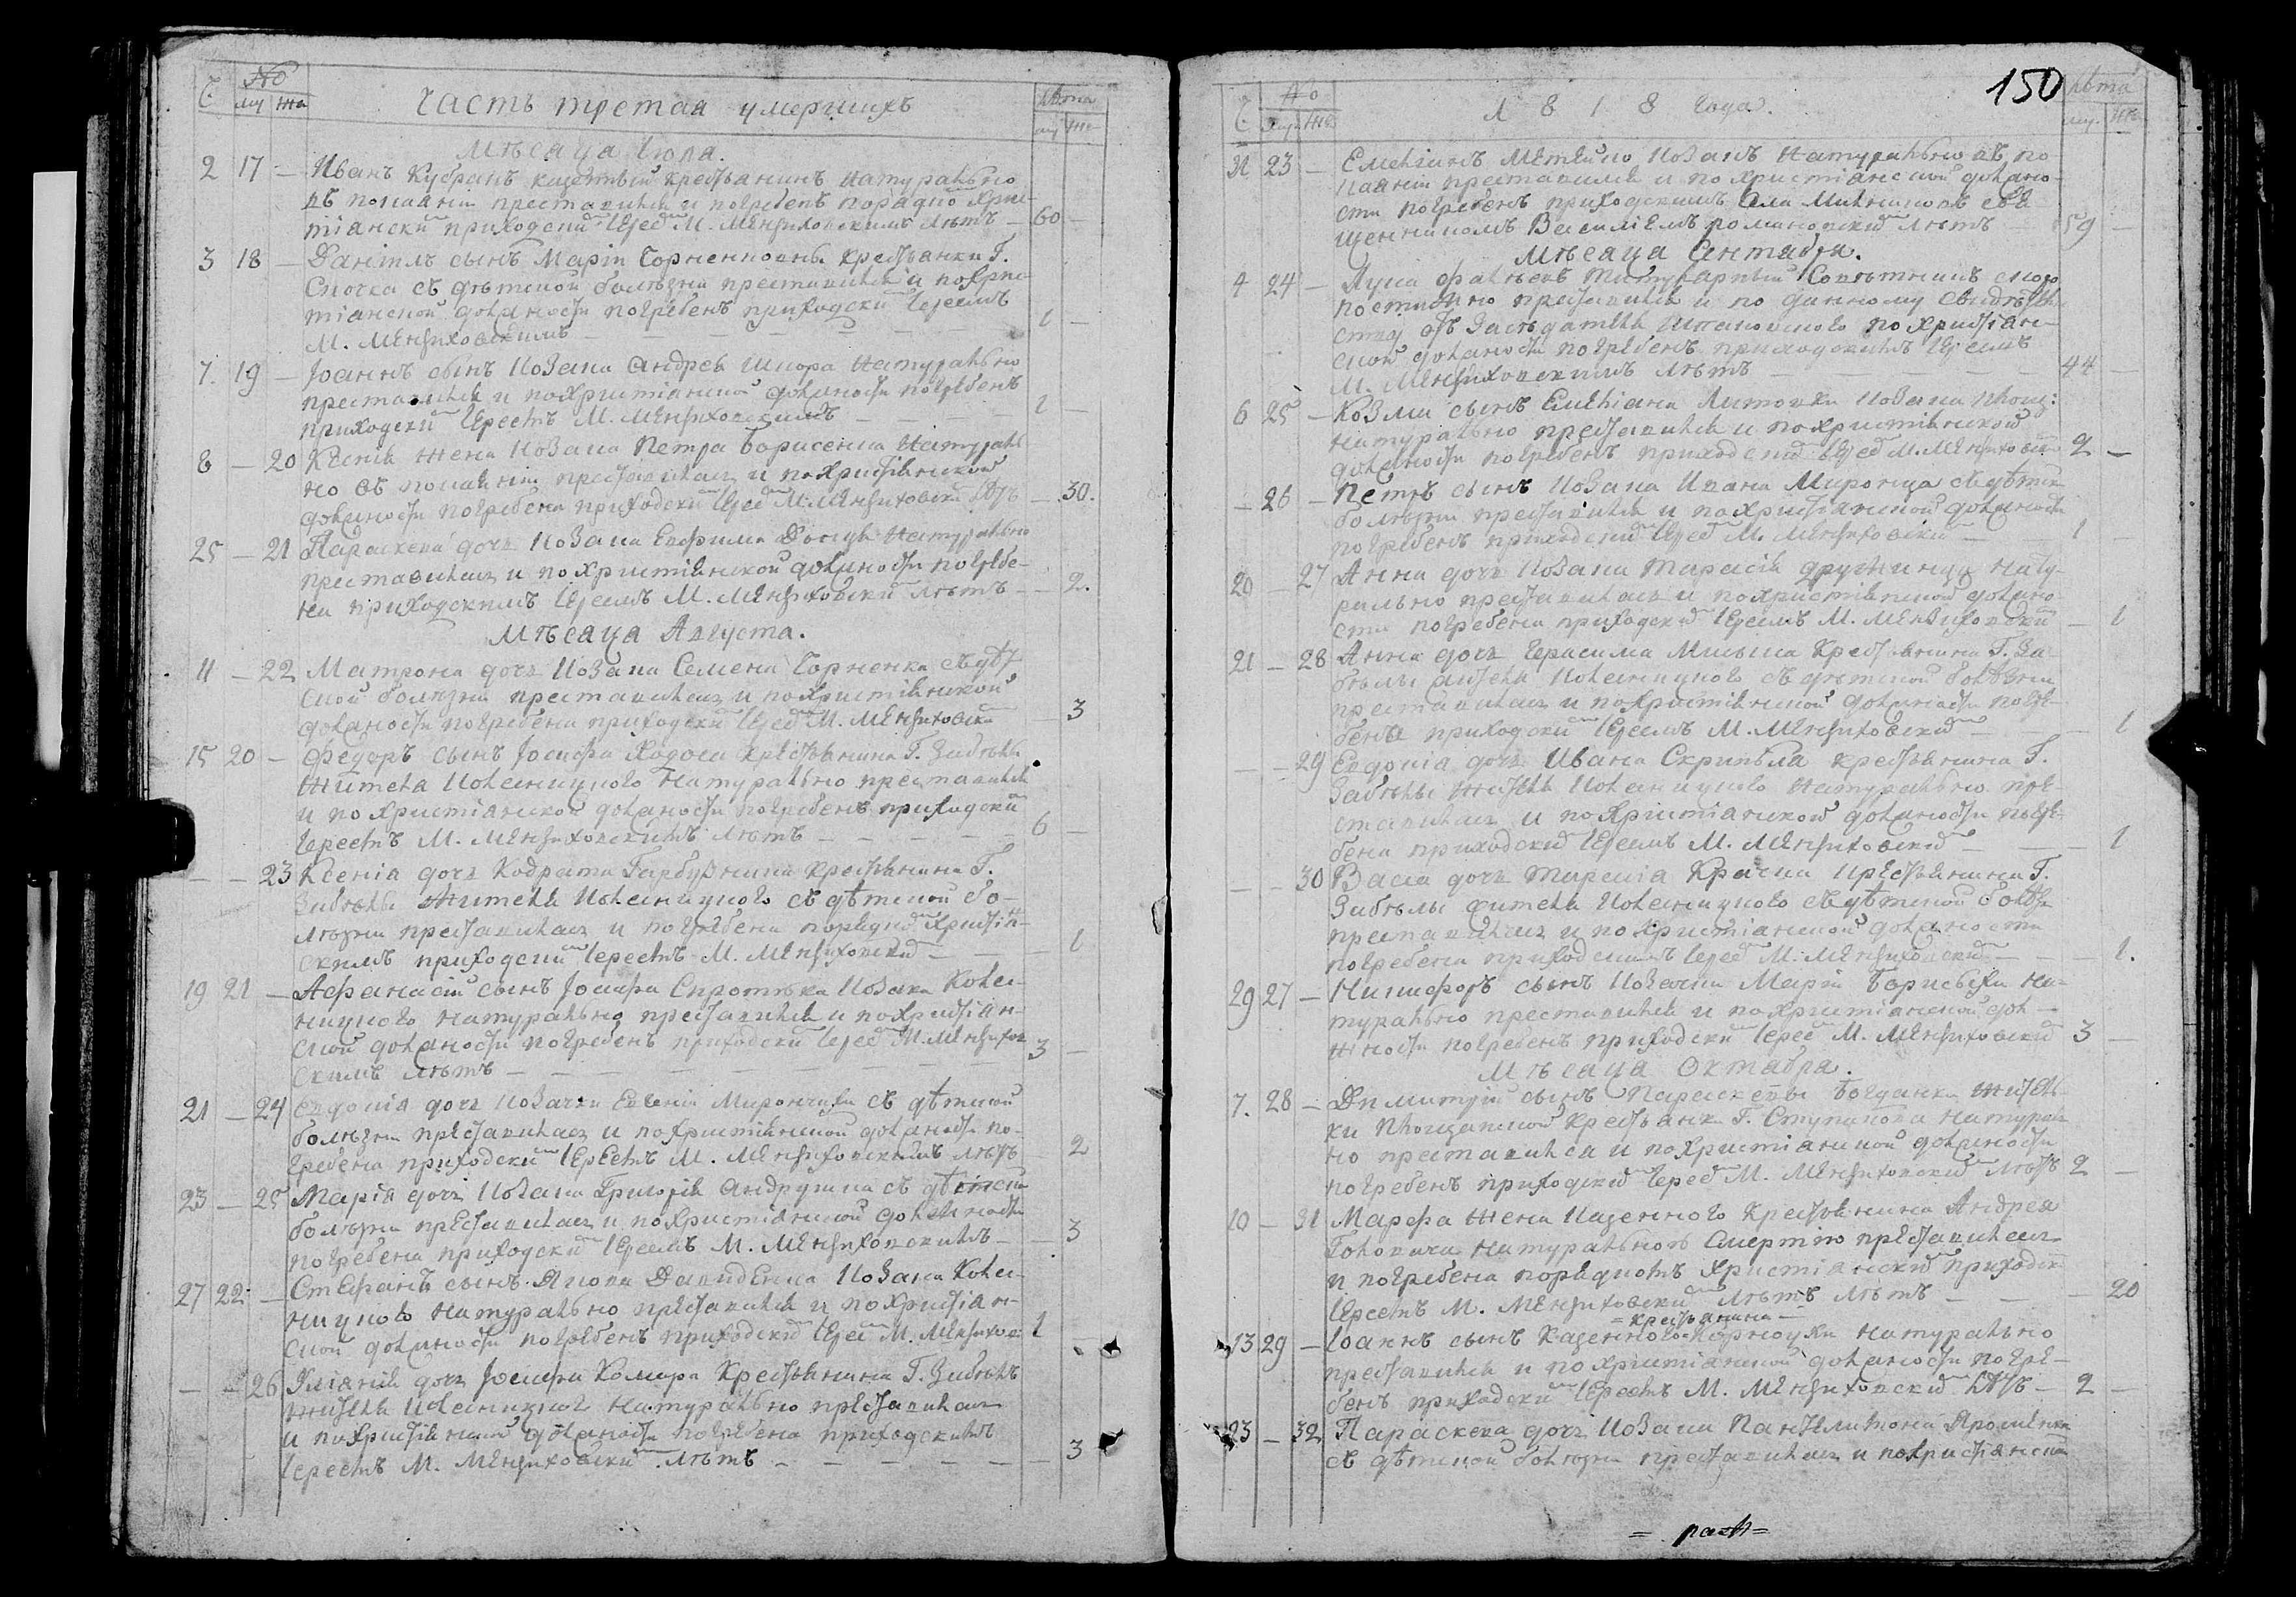 Ч. No му же Часть третая умершихъ Лѣта му же
Мѣсаца Іюля.
2 17 — Иванъ Кубракъ казенный крестьянинъ натурально
въ покаяніи преставился и погребенъ порадно Хрис-
тіански приходски Іерее М. Менжиховскимъ лѣтъ — 60 —
3 18 — Даніилъ сынъ Маріи Чорненковны крестьянки Г.
съ дѣтской болѣзни преставился и по Хрис-
тіанской должности погребенъ приходски Іереемъ
М. Менжиховскимъ — — — 1 —
7. 19 — Іоаннъ сынъ козака Андрея Шкора натурально
преставился и по христіанской должности погребенъ
приходски Іереемъ М. Менжиховскимъ — — 1 —
8 — 20 Ксенія жена козака Петра Борисенка натураль
но въ покаяніи преставилась и по Христіанской
должности погребена приходски Іерее М. Менжиховски лѣтъ — 30.
25 — 21 Параскева дочь козака Евфима натурально
преставилась и по Христіянской должности погребе-
на приходскимъ Іереемъ М. Менжиховски лѣтъ — — 2.
Мѣсаца Августа.
11 — 22 Матрона дочь козака Семена Чорненка съ дѣт
ской болѣзни преставилась и по Христіянской
должности погребена приходски Іерее М. Менжиховски 3
15 20 — Федоръ сынъ Іосифа Ходоса крестьянина Г. Забѣлы
жителя натурально преставился
и по Христіанской должности погребенъ приходски
Іереемъ М. Менжиховскимъ лѣтъ — — — 6 —
— — 23 Ксенія дочь Кодрата Гарбузника крестьянина Г.
Забѣлы жителя съ дѣтской бо-
лѣзни преставилась и погребена порядно Христіан-
скимъ приходски Іереемъ М. Менжиховски — — 1
19 21 — Афанасій сынъ Іосифа Сиротѣка козака
натурально преставился и по Христіан-
ской должности погребенъ приходски Іерее М. Менжихов
скимъ лѣтъ — — — — 3 —
21 — 24 Евдокія дочь козачки Евгеніи Мирончихи съ дѣтской
болѣзни преставилась и по христіянской должности по-
гребена приходски Іереемъ М. Менжиховскимъ лѣтъ — 2
23 — 25 Марія дочь козака Григорія Андрущика съ дѣтской
болѣзни преставилась и по Христіанской должности
погребена приходски Іереемъ М. Менжиховскимъ — — 3
27 22 — Стефанъ сынъ Якова Давиденка козака
натурально преставился и по Христіан-
ской должности погребенъ приходски Іерее М. Менжихов 1
— — 26 Уліанія дочь Іосифа Комара крестьянина Г. Забѣлы
жителя натурально преставилась
и по Христіянской должности погребена приходскимъ
Іереемъ М. Менжиховски лѣтъ — — — — 3
150
Ч. No му. же 1 8 1 8 года. Лѣта му. же
23 — козакъ натурально въ по
каяніи преставился и по христіанской должно-
сти погребенъ приходскимъ свя
щенникомъ Василіемъ Романовски лѣтъ — 59 —
Мѣсаца Сентабра.
4 24 — Лука титуларный совѣтникъ скоро
постижно преставился и по данному свидѣтель
ству отъ Засѣдателя по христіан-
ской должности погребенъ приходскимъ Іереемъ
М. Менжиховскимъ лѣтъ — — — 44 —
6 25 — Козма сынъ Емеліана Литовки козака
натурально преставился и по христіянской
должности погребенъ приходски Іерее М. Менжиховски 2 —
— 26 — Петръ сынъ козака Ивана Миронца съ дѣтск
болѣзни преставился и по христіянской должности
погребенъ приходски Іерее М. Менжиховски — — 1 —
20 — 27 Анна дочь козака Тарасія Дружинца нату-
рально преставилась и по христіянской должно-
сти погребена приходски Іереемъ М. Менжиховски — 1
21 — 28 Анна дочь Герасима крестьянина Г. За
бѣлы жителя съ дѣтской болѣзни
преставилась и по христіянской должности погре-
бена приходски Іереемъ М. Менжиховски — — 1
— — 29 Евдокія дочь Ивана крестьянина Г.
Забѣлы жителя натурально пре-
ставилась и по Христіанской должности погре-
бена приходски Іереемъ М. Менжиховски — — 1
— — 30 Васса дочь крестьянина Г.
Забѣлы жителя съ дѣтской болѣзни
преставилась и по христіанской должности
погребена приходскимъ Іерее М. Менжиховски — — 1.
29 27 — Никифоръ сынъ козачки Маріи на-
турально преставился и по христіанской дол-
жности погребенъ приходски Іерее М. Менжиховски 3 —
Мѣсаца Октабра.
7. 28 — Димитрій сынъ Параскевы Богданки житель-
ки крестьянки Г. натураль
но преставился и по христіанской должности
погребенъ приходски Іерее М. Менжиховски лѣтъ 2 —
10 — 31 Марфа жена казенного крестьянина Андрея
натуральною смертію преставилась
и погребена порядкомъ Христіански приходски
Іереемъ М. Менжиховски лѣтъ лѣтъ — — 20
= крестьянина —
13 29 — Іоаннъ сынъ казенного Корноухи натурально
преставился и по христіанской должности погре-
бенъ приходски Іереемъ М. Менжиховски лѣтъ — 2 —
23 — 32 Параскева дочь козака Пантелимона Яроменка
съ дѣтской болѣзни преставилась и по христіанской